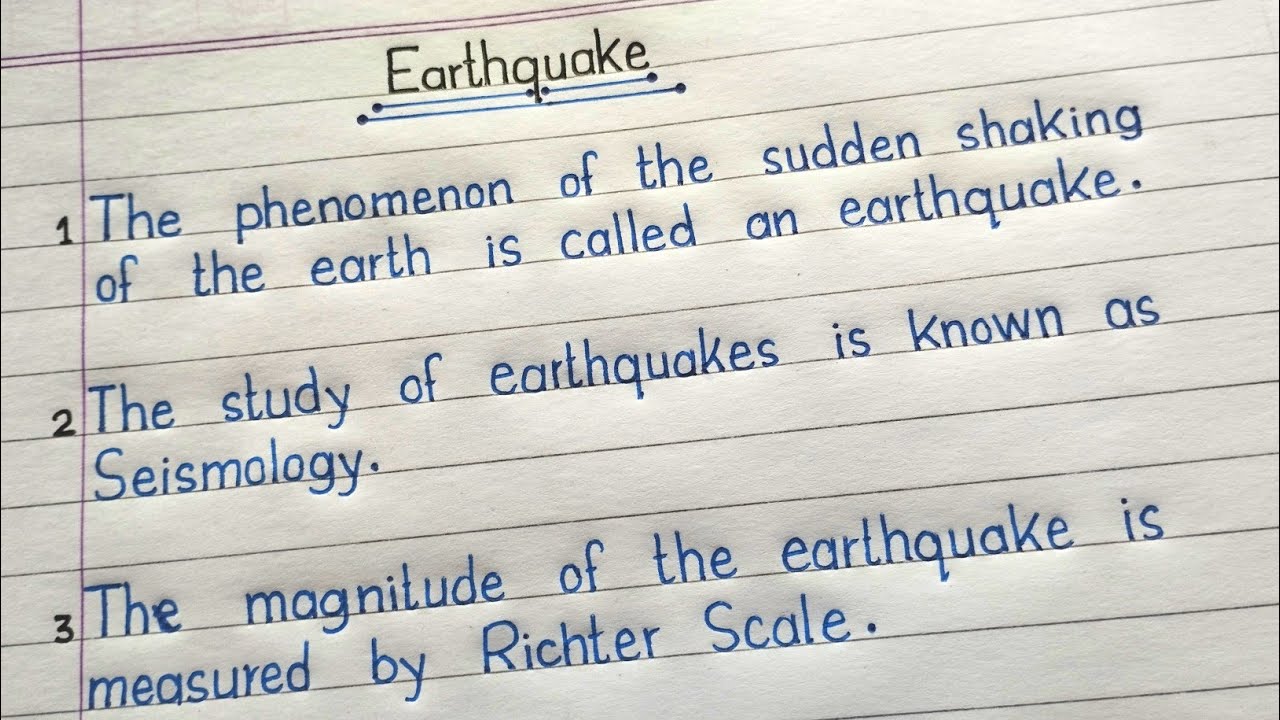 Earthquake
1 The phenomenon of the sudden shaking
of the earth is called an earthquake.
2 The study of earthquakes is known as
Seismology.
3 The magnitude of the earthquake is
measured by Richter Scale.